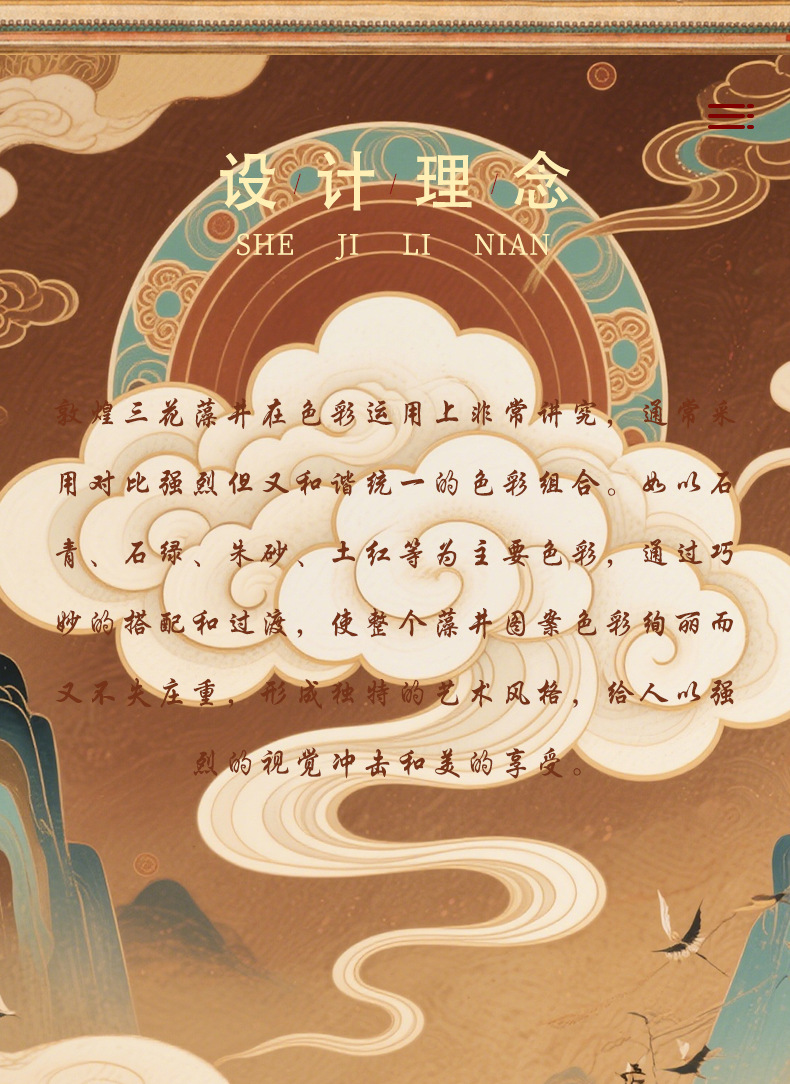 设/计/理/念
SHE JI LI NIAN
敦煌三花藻井在色彩运用上非常讲究，通常采
用对比强烈但又和谐统一的色彩组合。如以石
青、石绿、朱砂、土红等为主要色彩，通过巧
妙的搭配和过渡，使整个藻井图案色彩绚丽而
又不失庄重，形成独特的艺术风格，给人以强
烈的视觉冲击和美的享受。